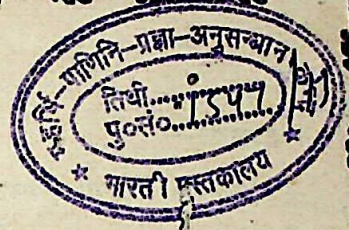 महर्षि-पाणिनि-प्रज्ञा-अनुसन्धान
तिथी............
पु०सं०...1547...
* भारती पुस्तकालय *